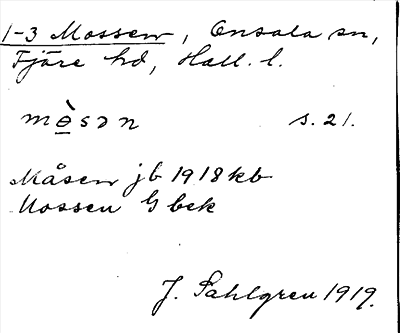 1-3 Mossen, Onsala sn,
Fjäre hd, Hall. l.
mò̲sən s. 21.
Måsen jb 1918 kb
Mossen G bek
J. Sahlgren 1919.